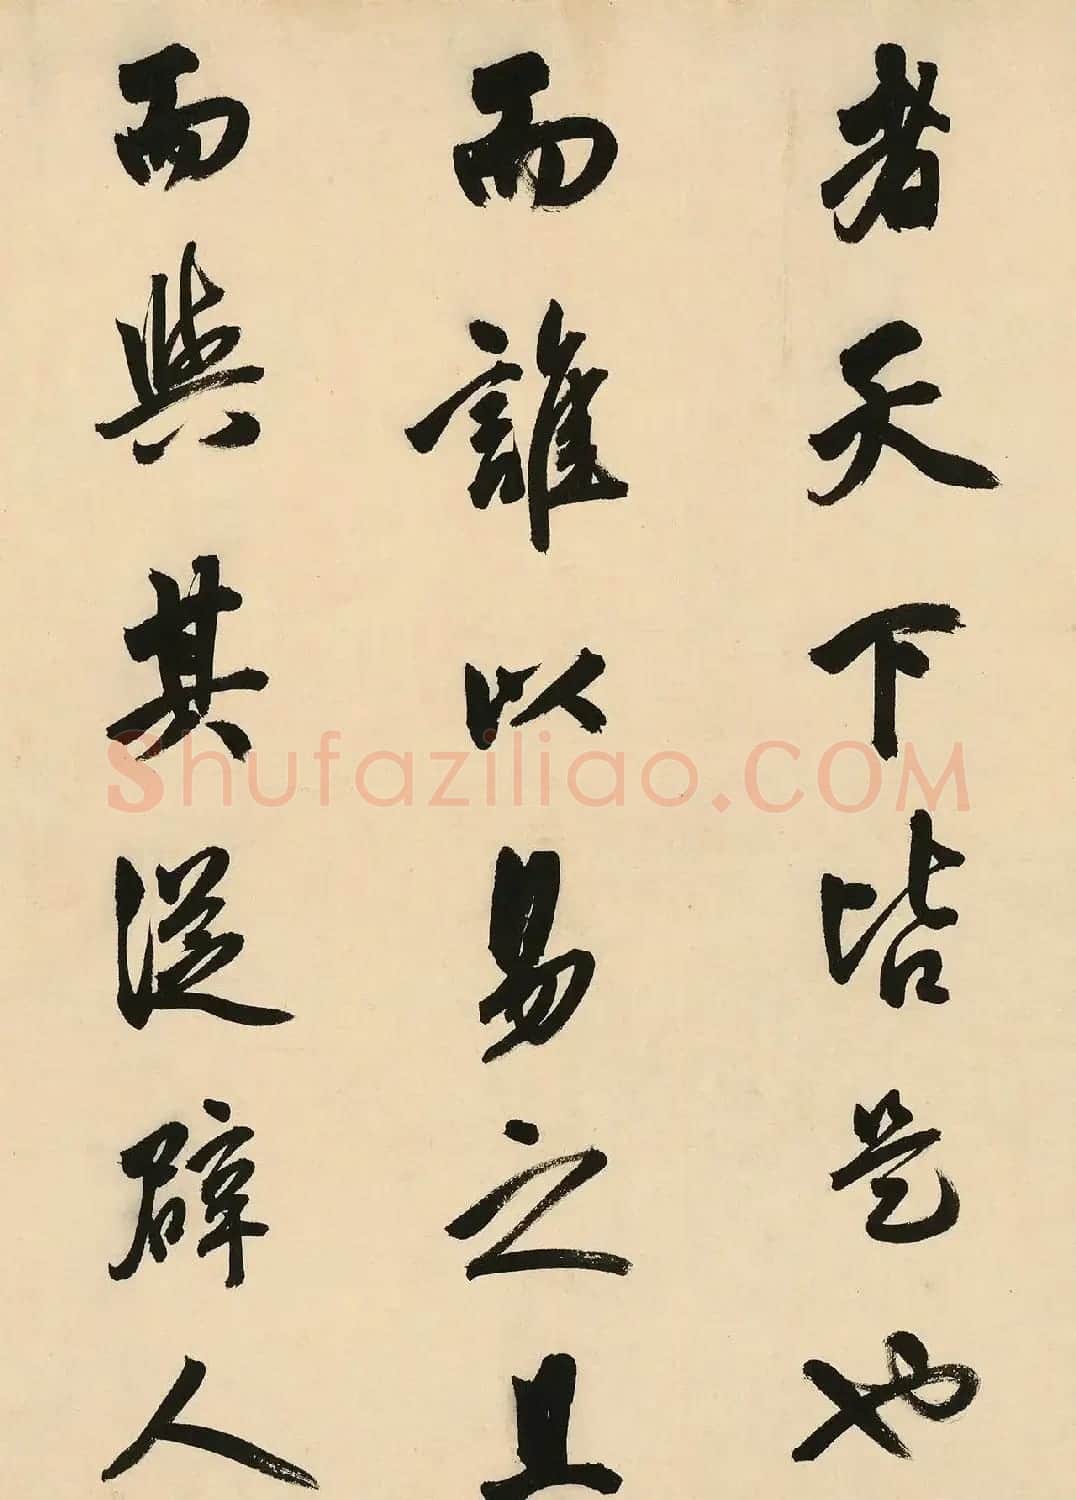 者天下皆是也
而誰以易之且
而與其從辟人
Shufaziliao.COM